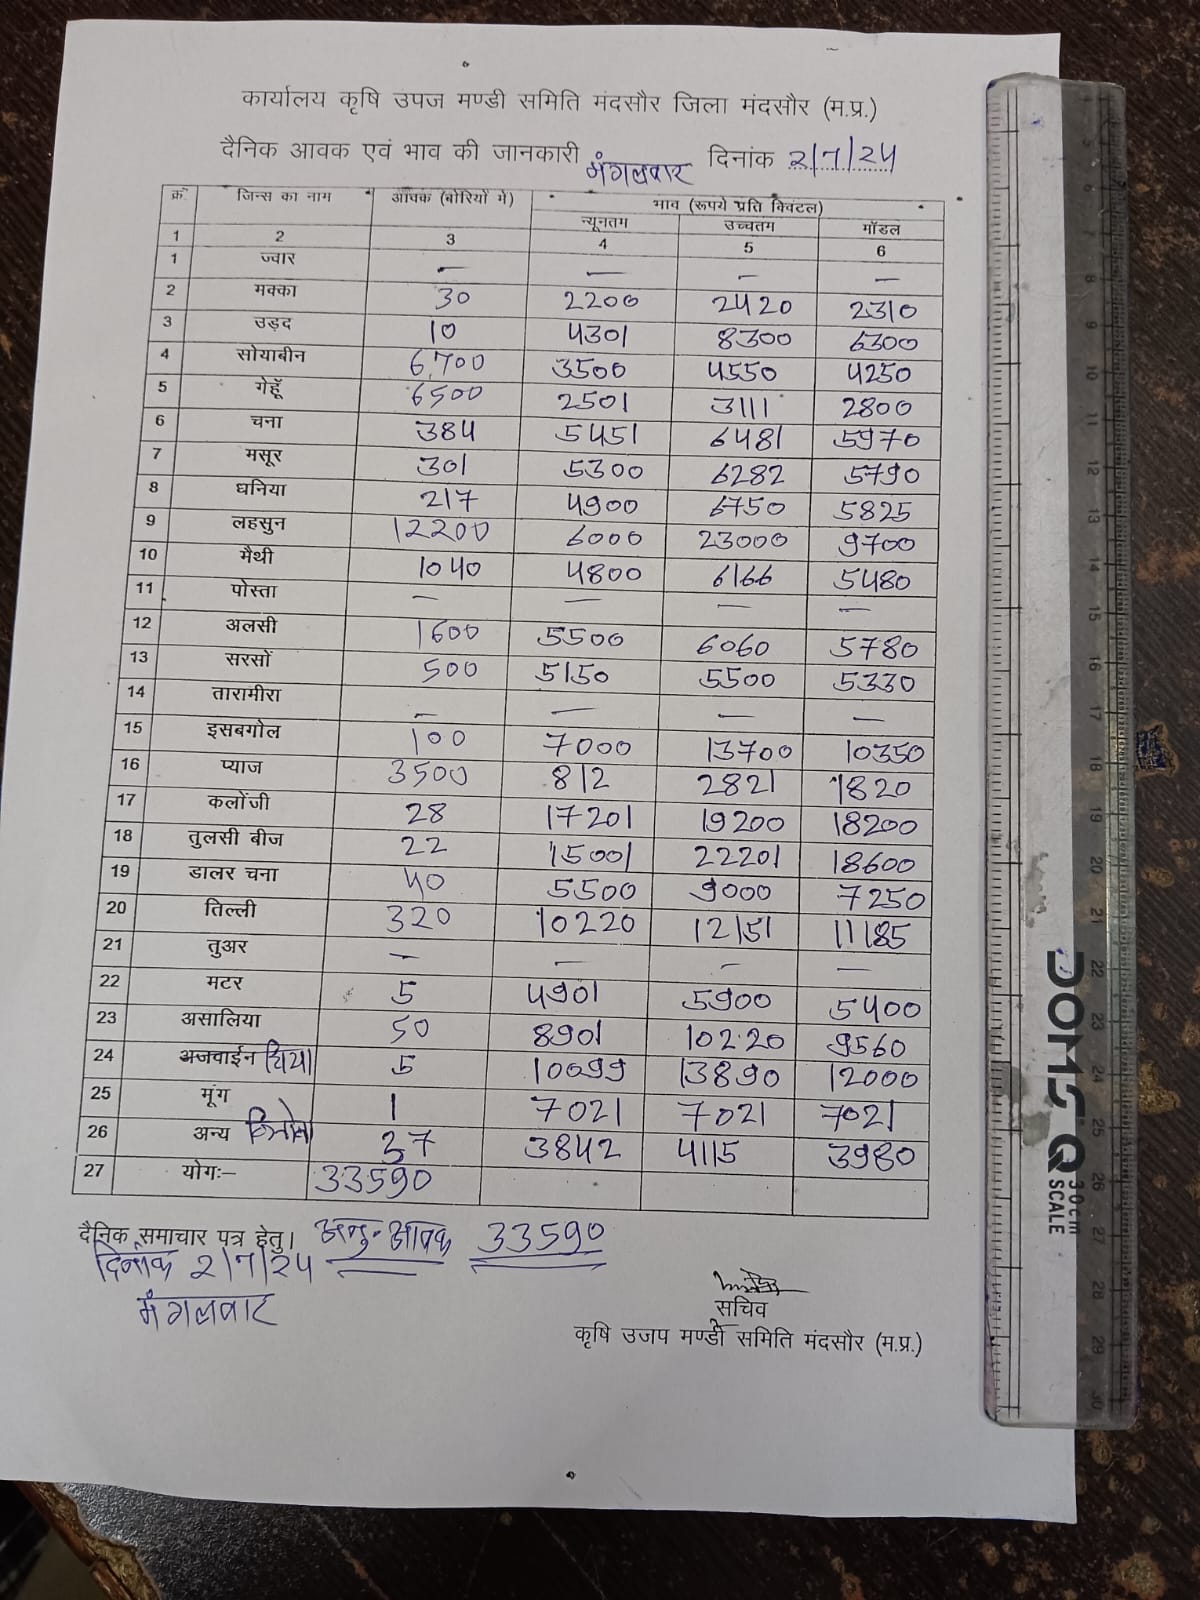 कार्यालय कृषि उपज मण्डी समिति मंदसौर जिला मंदसौर (म.प्र.)
दैनिक आवक एवं भाव की जानकारी मंगलवार दिनांक 2/7/24
क्रं. जिन्स का नाम आवक (बोरियों में) भाव (रूपये प्रति क्विंटल)
न्यूनतम उच्चतम मॉडल
1 2 3 4 5 6
1 ज्वार — — — —
2 मक्का 30 2200 2420 2310
3 उड़द 10 4301 8300 6300
4 सोयाबीन 6,700 3500 4550 4250
5 गेहूँ 6500 2501 3111 2800
6 चना 384 5451 6481 5970
7 मसूर 301 5300 6282 5790
8 धनिया 217 4900 6750 5825
9 लहसुन 12200 6000 23000 9700
10 मैथी 1040 4800 6166 5480
11 पोस्ता — — — —
12 अलसी 1600 5500 6060 5780
13 सरसों 500 5150 5500 5330
14 तारामीरा — — — —
15 इसबगोल 100 7000 13700 10350
16 प्याज 3500 812 2821 1820
17 कलोंजी 28 17201 19200 18200
18 तुलसी बीज 22 15001 22201 18600
19 डालर चना 40 5500 9000 7250
20 तिल्ली 320 10220 12151 11185
21 तुअर — — — —
22 मटर 5 4901 5900 5400
23 असालिया 50 8901 10220 9560
24 अजवाईन चिया 5 10099 13890 12000
25 मूंग 1 7021 7021 7021
26 अन्य 37 3842 4115 3980
27 योगः– 33590
दैनिक समाचार पत्र हेतु। अनु-आवक 33590
दिनांक 2/7/24
मंगलवार
सचिव
कृषि उजप मण्डी समिति मंदसौर (म.प्र.)
DOMS Q 30cm SCALE
8 9 10 11 12 13 14 15 16 17 18 19 20 21 22 23 24 25 26 27 28 29 30